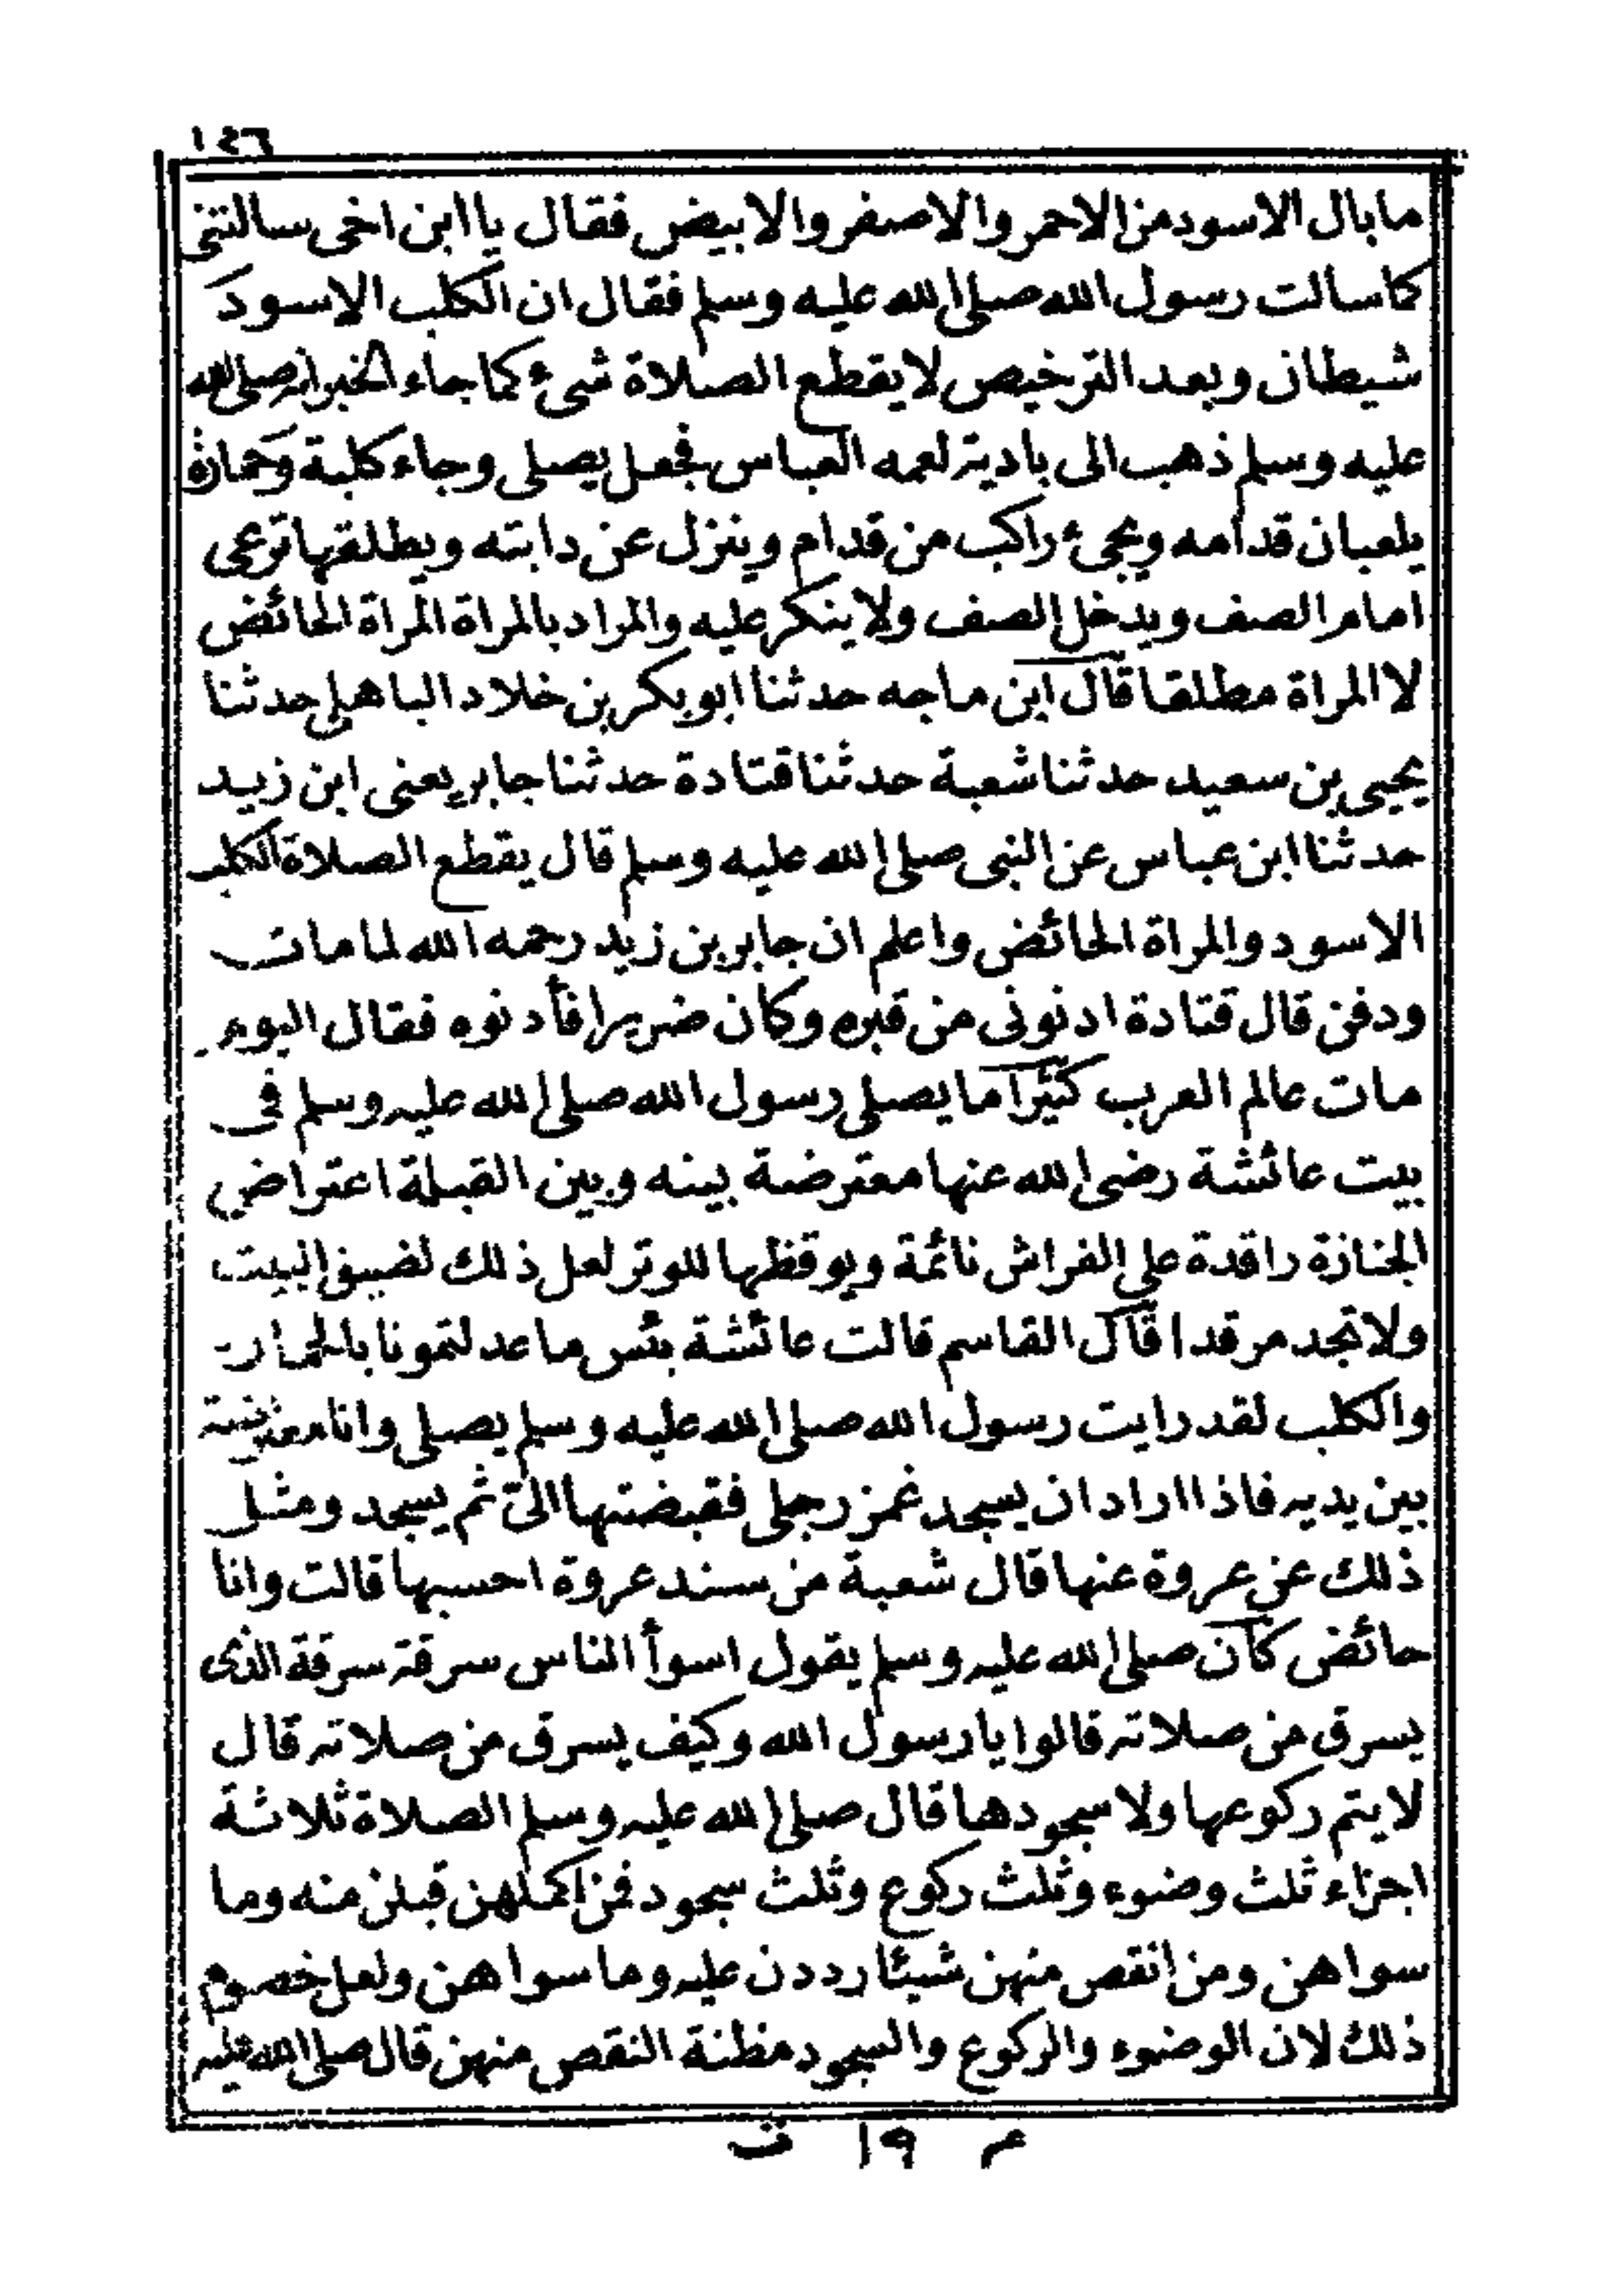 ١٤٦
مابال الاسود من الاحمر والاصفر والابيض فقال يا ابن اخى سالتنى
كما سالت رسول الله صلى الله عليه وسلم فقال ان الكلب الاسود
شيطان وبعد الترخيص لا يقطع الصلاة شىء كما جاء الخبر انه صلى الله
عليه وسلم ذهب الى بادية لعمه العباس فجعل يصلى وجاء كلبة وحمارة
يلعبان قدامه ويجىء راكب من قدام وينزل عن دابته ويطلقها ترعى
امام الصف ويدخل الصف ولا ينكر عليه والمراد بالمراة المراة الحائض
لا المراة مطلقا قال ابن ماجه حدثنا ابو بكر بن خلاد الباهلى حدثنا
يحيى بن سعيد حدثنا شعبة حدثنا قتادة حدثنا جابر يعنى ابن زيد
حدثنا ابن عباس عن النبى صلى الله عليه وسلم قال يقطع الصلاة الكلب
الاسود والمراة الحائض واعلم ان جابر بن زيد رحمه الله لما مات
ودفن قال قتادة ادنونى من قبره وكان ضريرا فأدنوه فقال اليوم
مات عالم العرب كثيرا ما يصلى رسول الله صلى الله عليه وسلم فى
بيت عائشة رضى الله عنها معترضة بينه وبين القبلة اعتراض
الجنازة راقدة على الفراش نائمة ويوقظها للوتر لعل ذلك لضيق البيت
ولا تجد مرقدا قال القاسم قالت عائشة بئس ما عدلتمونا بالحمار
والكلب لقد رايت رسول الله صلى الله عليه وسلم يصلى وانا معترضة
بين يديه فاذا اراد ان يسجد غمز رجلى فقبضتها الىّ ثم يسجد ومثل
ذلك عن عروة عنها قال شعبة من سند عروة احسبها قالت وانا
حائض كان صلى الله عليه وسلم يقول اسوأ الناس سرقة سرقة الذى
يسرق من صلاته قالوا يا رسول الله وكيف يسرق من صلاته قال
لا يتم ركوعها ولا سجودها قال صلى الله عليه وسلم الصلاة ثلاثة
اجزاء ثلث وضوء وثلث ركوع وثلث سجود فمن اكملهن قبلن منه وما
سواهن ومن انقص منهن شيئا رددن عليه وما سواهن ولعل خصوم
ذلك لان الوضوء والركوع والسجود مظنة النقص منهن قال صلى الله عليه
م ١٩ ف